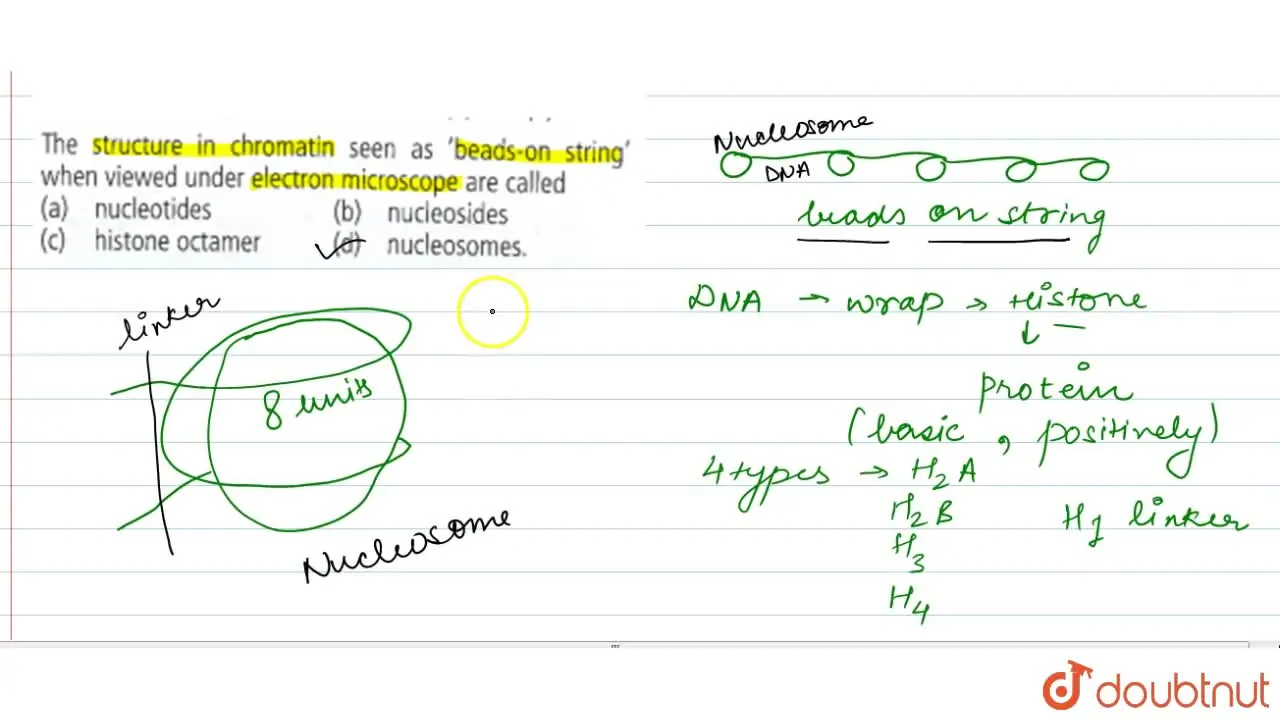 The structure in chromatin seen as 'beads-on string'
when viewed under electron microscope are called
(a) nucleotides (b) nucleosides
(c) histone octamer (d) nucleosomes.
linker
8 units
Nucleosome
Nucleosome
DNA
beads on string
DNA → wrap → Histone
↓
protein
(basic, positively)
4 types → H2A
H2B
H3
H4
H1 linker
doubtnut